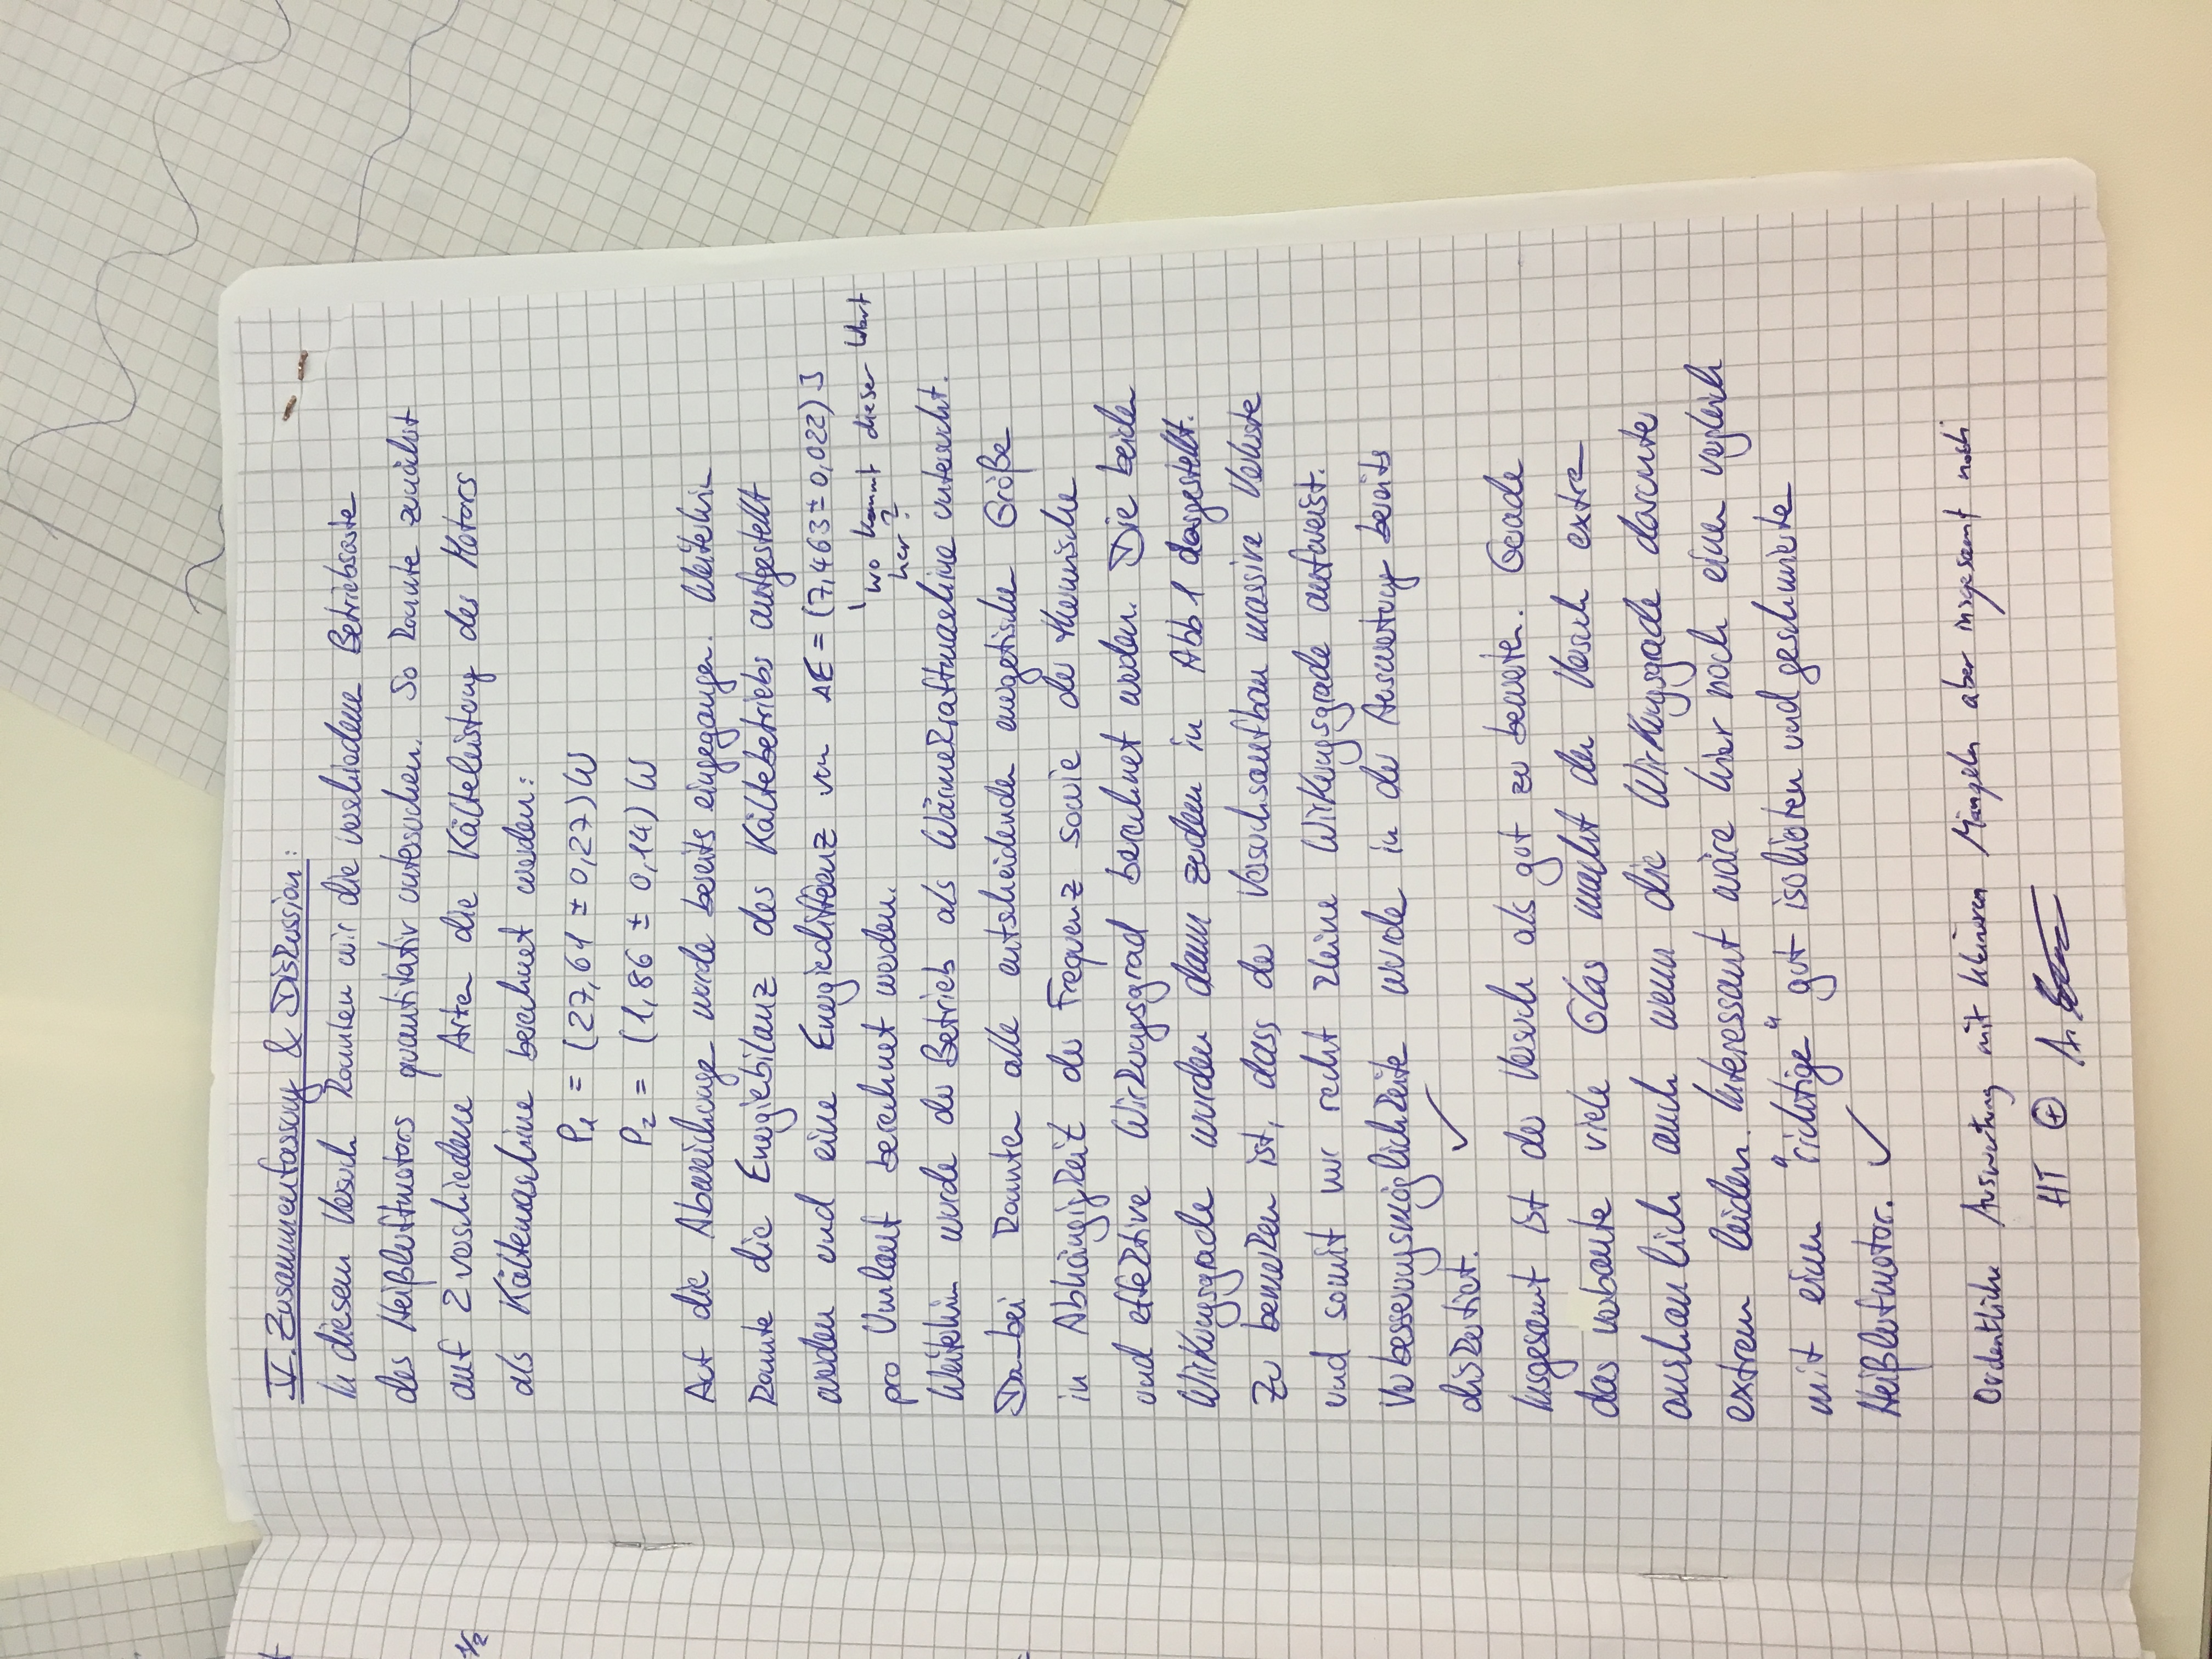 V. Zusammenfassung & Diskussion:
In diesem Versuch konnten wir die verschiedene Betriebsarten
des Heißluftmotors quantitativ untersuchen. So konnte zunächst
auf 2 verschiedene Arten die Kälteleistung des Motors
als Kältemaschine berechnet werden:
P₁ = (27,61 ± 0,27) W
P₂ = (1,86 ± 0,14) W
Auf die Abweichunge wurde bereits eingegangen. Weiterhin
konnte die Energiebilanz des Kältebetriebs aufgestellt
werden und eine Energiedifferenz von ΔE = (7,463 ± 0,022) J
wo kommt dieser Wert
her?
pro Umlauf berechnet werden.
Weiterhin wurde der Betrieb als Wärmekraftmaschine untersucht.
Dabei konnten alle entscheidenden energetischen Größe
in Abhängigkeit der Frequenz sowie der thermische
und effektive Wirkungsgrad berechnet werden. Die beiden
Wirkungsgrade wurden dann zudem in Abb 1 dargestellt.
Zu bemerken ist, dass der Versuchsaufbau massive Verluste
und somit nur recht kleine Wirkungsgrade aufweist.
Verbesserungsmöglichkeite wurden in der Auswertung bereits
diskutiert. ✓
Insgesamt ist der Versuch als gut zu bewerten. Gerade
das verbaute viele Glas macht den Versuch extra
anschaulich auch wenn die Wirkungsgrade darunter
extrem leiden. Interessant wäre hier noch einen vergleich
mit einem "richtigen" gut isolierten und geschmierten
Heißlufmotor. ✓
Ordentliche Auswertung mit kleineren Mängeln aber insgesamt noch
HT ⊕ A.